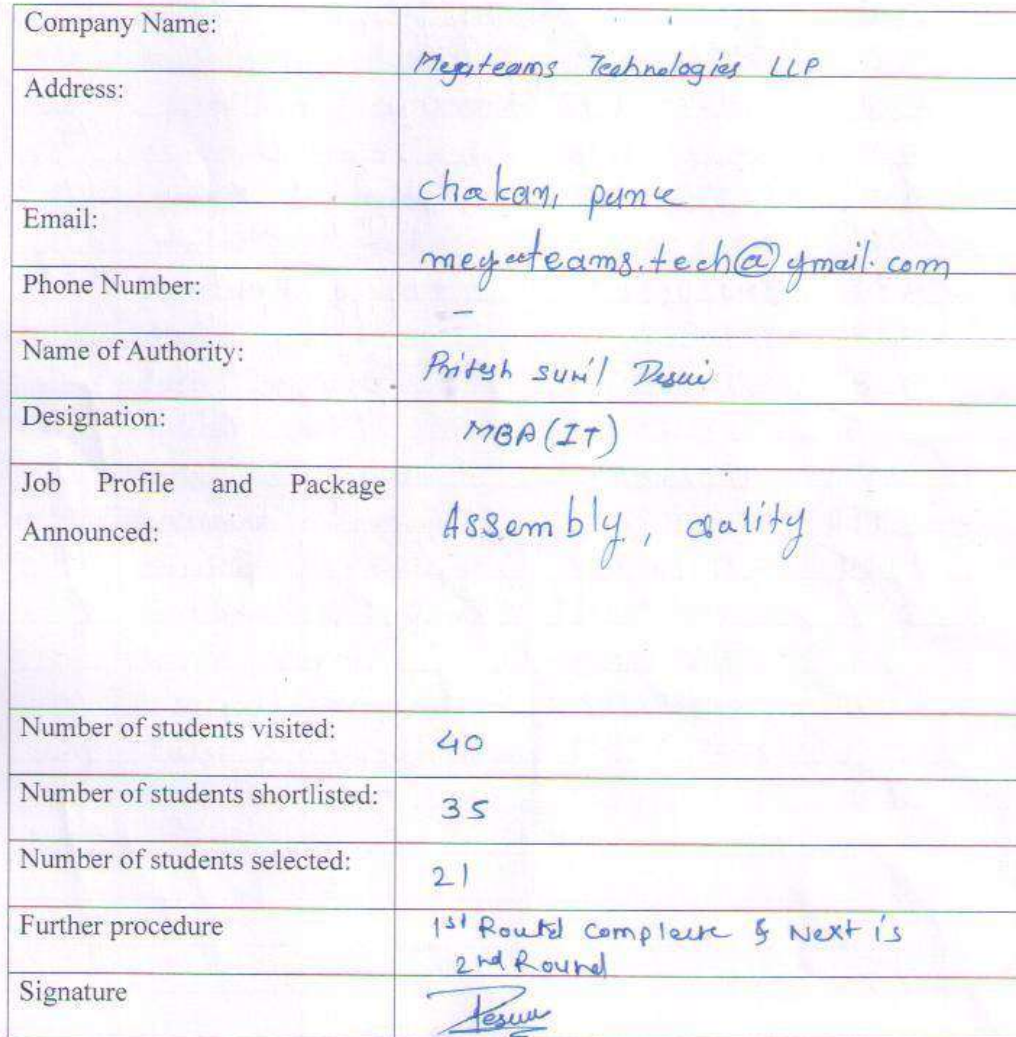 Company Name:
Megateams Technologies LLP
Address:
Chakan, pune
Email:
megateams.tech@gmail.com
Phone Number:
–
Name of Authority:
Pritesh sunil Desai
Designation:
MBA (IT)
Job Profile and Package
Announced:
Assembly, Qality
Number of students visited:
40
Number of students shortlisted:
35
Number of students selected:
21
Further procedure
1st Round complete & Next is
2nd Round
Signature
Desai